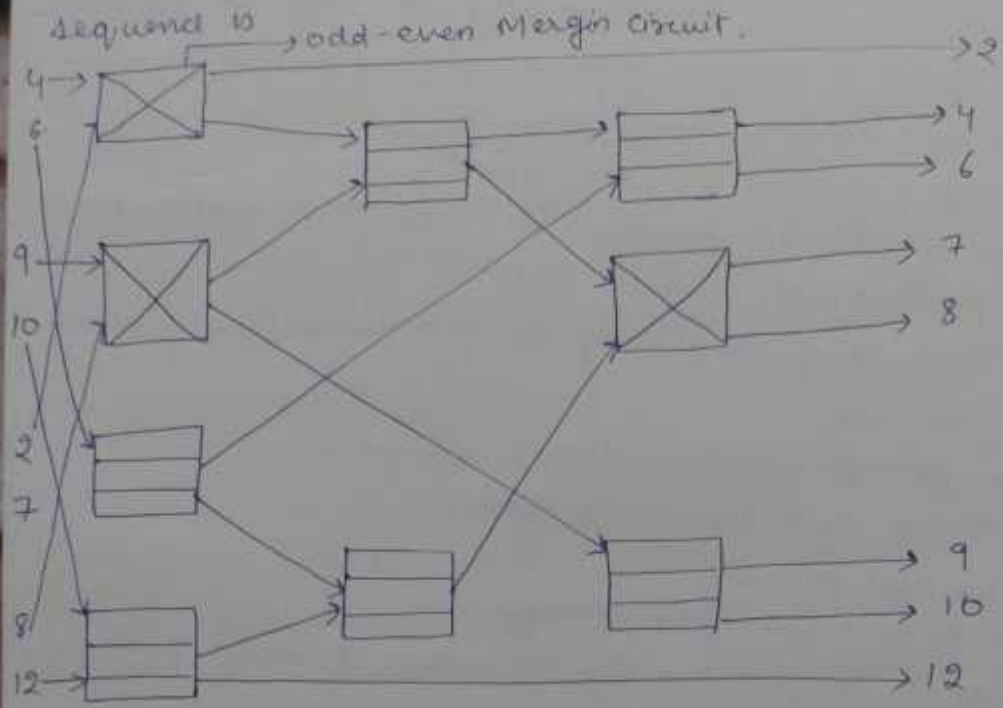 sequence is
odd-even Mergin Circuit.
4
6
9
10
2
7
8
12
2
4
6
7
8
9
10
12